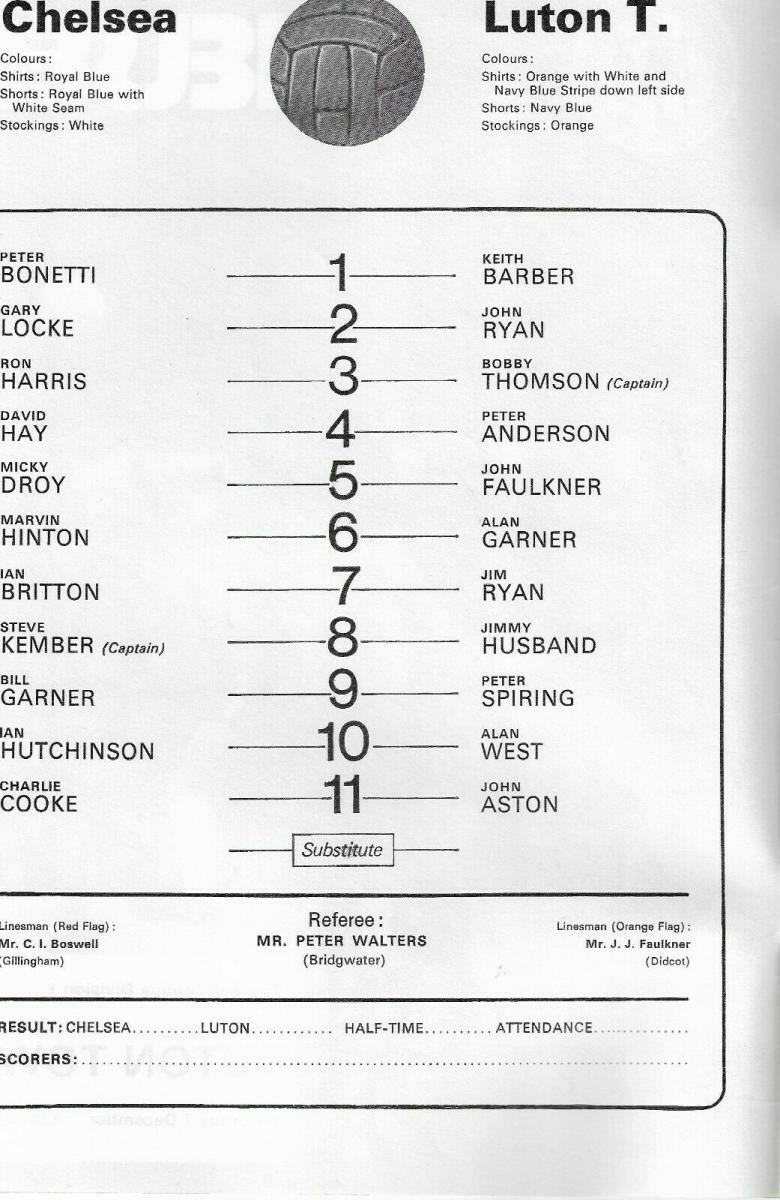 Chelsea Luton T.
Colours: Colours:
Shirts: Royal Blue Shirts: Orange with White and
Shorts: Royal Blue with Navy Blue Stripe down left side
White Seam Shorts: Navy Blue
Stockings: White Stockings: Orange
PETER KEITH
BONETTI 1 BARBER
GARY JOHN
LOCKE 2 RYAN
RON BOBBY
HARRIS 3 THOMSON (Captain)
DAVID PETER
HAY 4 ANDERSON
MICKY JOHN
DROY 5 FAULKNER
MARVIN ALAN
HINTON 6 GARNER
IAN JIM
BRITTON 7 RYAN
STEVE JIMMY
KEMBER (Captain) 8 HUSBAND
BILL PETER
GARNER 9 SPIRING
IAN ALAN
HUTCHINSON 10 WEST
CHARLIE JOHN
COOKE 11 ASTON
Substitute
Linesman (Red Flag): Referee: Linesman (Orange Flag):
Mr. C. I. Boswell MR. PETER WALTERS Mr. J. J. Faulkner
(Gillingham) (Bridgwater) (Didcot)
RESULT: CHELSEA..........LUTON............ HALF-TIME..........ATTENDANCE..............
SCORERS:..........................................................................................